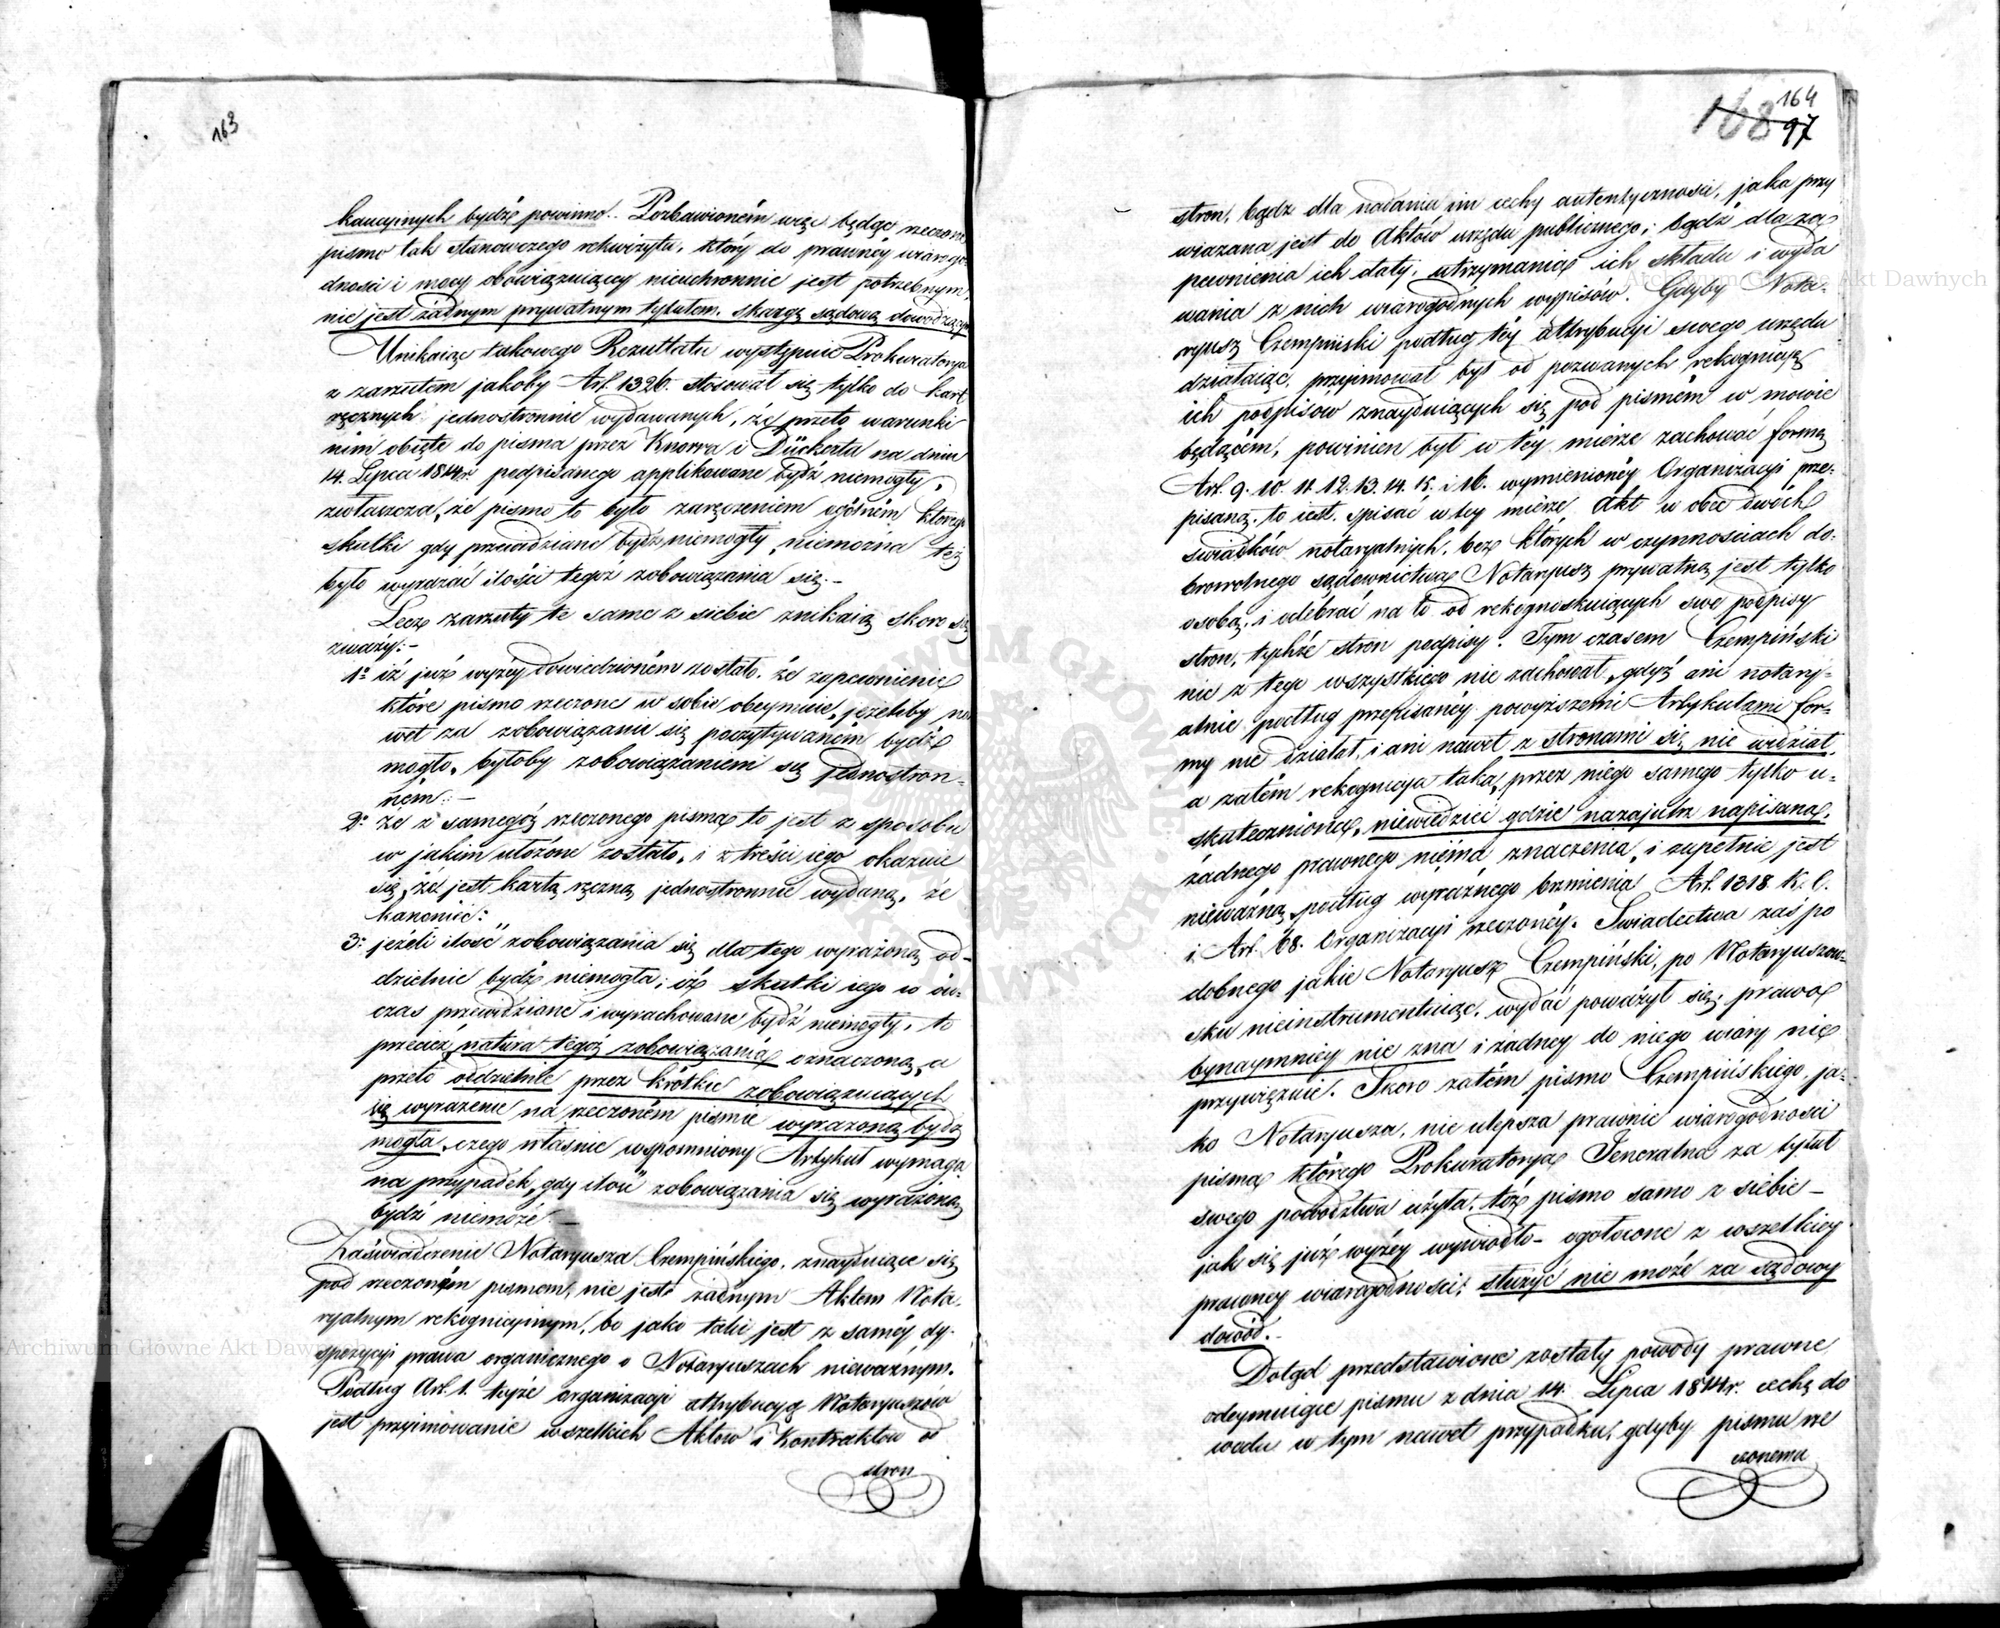 163
kaucyinych bydź powinno. Pozbawioném więc będąc rzeczone
pismo tak stanowczego rekwizytu, który do prawnéy wiarogo-
dności i mocy obowiązuiącey nieuchronnie jest potrzebnym,
nie jest żadnym prywatnym tytułem, skargę sądową dowodzącym
Unikaiąc takowego Rezultatu występuie Prokuratorya
z zarzutem jakoby Art. 1326. stosował się tylko do kart
ręcznych jednostronnie wydawanych, że przeto warunki
nim obięte do pisma przez Knorra i Dückerta na dniu
14. Lipca 1814r. podpisanego applikowane bydź niemogły,
zwłaszcza, że pismo to było zaręczeniem ogólném którego
skutki gdy przewidziane bydź niemogły, niemożna też
było wyrazić ilości tegoż zobowiązania się.-
Lecz zarzuty te same z siebie znikaią skoro się
zważy:-
1º iż już wyżéy dowiedzioném zostało, że zapewnienie
które pismo rzeczone w sobie obeymuie, jeżeliby na-
wet za zobowiązanie się poczytywaném bydź
mogło, byłoby zobowiązaniem się jednostron-
ném:-
2º że z samegoż rzeczonego pisma to jest z sposobu
w jakim ułożone zostało, i z treści iego okazuie
się, że jest kartą ręczną jednostronnie wydaną, że
nakoniec:
3º jeżeli ilość zobowiązania się dla tego wyrażoną od-
dzielnie bydź niemogła, iż skutki iego w ów-
czas przewidziane i wyrachowane bydź niemogły, to
przecież natura tegoż zobowiązania oznaczoną, a
przeto oddzielnie przez krótkie zobowiązuiących
się wyrażenie na rzeczoném piśmie wyrażoną bydź
mogła, czego właśnie wspomniony Artykuł wymaga
na przypadek, gdy ilość zobowiązania się wyrażoną
bydź niemoże.-
Zaświadczenie Notaryusza Czempińskiego, znayduiące się
pod rzeczoném pismem, nie jest żadnym Aktem Nota-
ryalnym rekognicyinym, bo jako takie jest z saméy dy-
spozycyi prawa organicznego o Notaryuszach nieważnym.
Podług Art. 1. teyże organizacyi attrybucyą Notaryuszów
jest przyimowanie wszelkich Aktów i Kontraktów od
stron
168 164
97
stron, bądz dla nadania im cechy autentyczności, jaka przy
wiązana jest do Aktów urzędu publicznego; bądź dla za-
pewnienia ich daty, utrzymania ich składu i wyda
wania z nich wiarogodnych wypisów. Gdyby Nota-
ryusz Czempiński podług téy attrybucyi swego urzędu
działaiąc, przyimował był od pozwanych rekognicyą
ich podpisów znayduiących się pod pismém w mowie
będącém, powinien był w téy mierze zachować formę
Art. 9. 10. 11. 12. 13. 14. 15. i 16. wymienionéy Organizacyi prze-
pisaną, to iest. spisać w tey mierze Akt w obec dwóch
świadków notaryalnych, bez których w czynnościach do-
browolnego sądownictwa Notaryusz prywatną jest tylko
osobą, i odebrać na to od rekognoskuiących swe podpisy
stron, tychże stron podpisy. Tym czasem Czempiński
nic z tego wszystkiego nie zachował, gdyż ani notary-
alnie podług przepisanéy powyższemi Artykułami for-
my nie działał, i ani nawet z stronami się nie widział,
a zatém rekognicya taka, przez niego samego tylko u-
skuteczniona, niewiedzieć gdzie nazajutrz napisana,
żadnego prawnego niéma znaczenia, i zupełnie jest
nieważną, podług wyraźnego brzmienia Art. 1318. K. C.
i Art. 68. Organizacyi rzeczonéy. Świadectwa zaś po
dobnego jakie Notaryusz Czempiński, po Notaryuszow-
sku nieinstrumentuiąc, wydać poważył się, prawo
bynaymniey nie zna i żadney do niego wiary nie
przywięzuie. Skoro zatém pismo Czempińskiego, ja-
ko Notaryusza, nie ulepsza prawnie wiarogodności
pisma którego Prokuratorya Jeneralna za tytuł
swego powództwa użyła, toż pismo samo z siebie -
jak się już wyżéy wywiodło - ogołocone z wszelkiey
prawney wiarogodności, służyć nie może za sądowy
dowód.-
Dotąd przedstawione zostały powody prawne,
odeymuiące pismu z dnia 14. Lipca 1814r. cechę do
wodu w tym nawet przypadku, gdyby pismu rze
czonemu